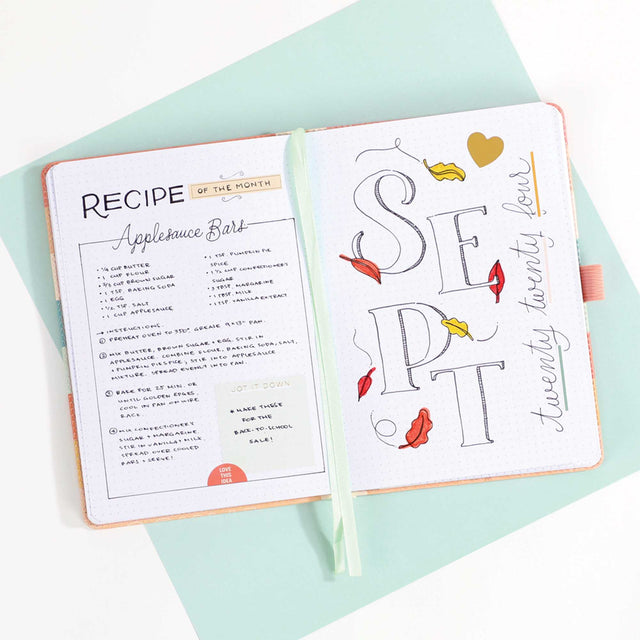 RECIPE OF THE MONTH
Applesauce Bars
• 1/4 CUP BUTTER
• 1 CUP FLOUR
• 2/3 CUP BROWN SUGAR
• 1 TSP. BAKING SODA
• 1 EGG
• 1/2 TSP. SALT
• 1 CUP APPLESAUCE
• 1 TSP. PUMPKIN PIE
SPICE
• 1 1/2 CUP CONFECTIONERY
SUGAR
• 3 TBSP. MARGARINE
• 1 TBSP. MILK
• 1 TSP. VANILLA EXTRACT
→ INSTRUCTIONS:
① PREHEAT OVEN TO 350°. GREASE 9"X13" PAN.
② MIX BUTTER, BROWN SUGAR + EGG. STIR IN
APPLESAUCE. COMBINE FLOUR, BAKING SODA, SALT,
+ PUMPKIN PIE SPICE; STIR INTO APPLESAUCE
MIXTURE. SPREAD EVENLY INTO PAN.
③ BAKE FOR 25 MIN. OR
UNTIL GOLDEN EDGES.
COOL IN PAN ON WIRE
RACK.
④ MIX CONFECTIONERY
SUGAR + MARGARINE.
STIR IN VANILLA + MILK.
SPREAD OVER COOLED
BARS + SERVE!
JOT IT DOWN
* MAKE THESE
FOR THE
BACK-TO-SCHOOL
SALE!
LOVE
THIS
IDEA
SE
PT
twenty twenty four